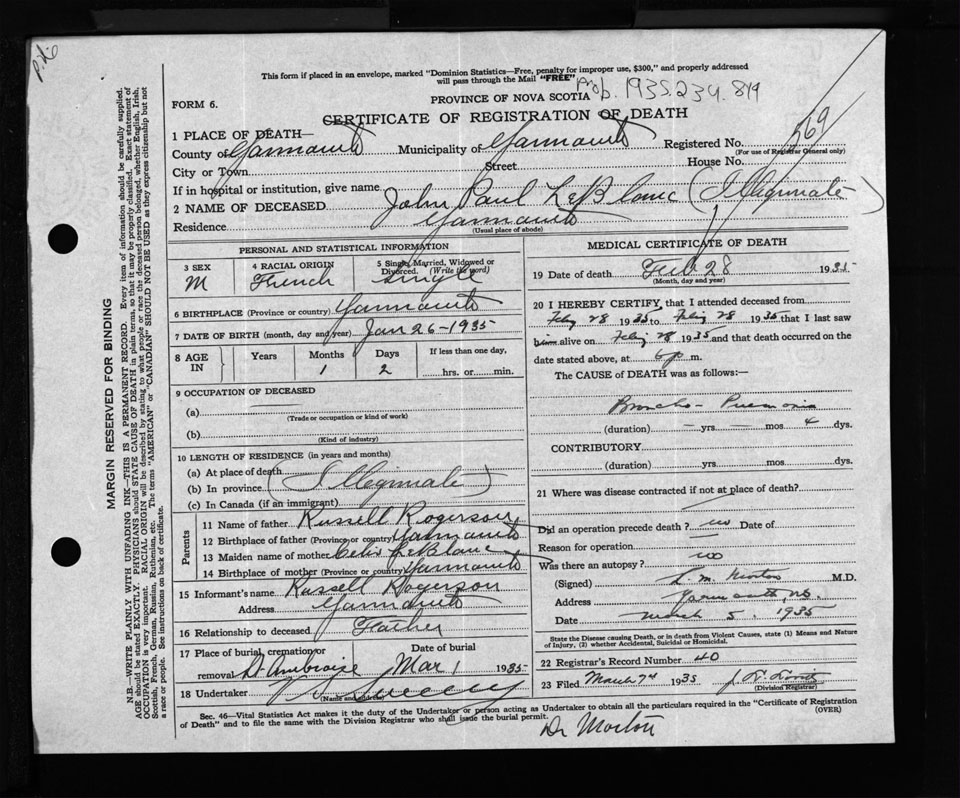 This form if placed in an envelope, marked "Dominion Statistics—Free, penalty for improper use, $300," and properly addressed
will pass through the Mail "FREE"
1935.234.819
FORM 6.
PROVINCE OF NOVA SCOTIA
CERTIFICATE OF REGISTRATION OF DEATH
1 PLACE OF DEATH—
County of Yarmouth Municipality of Yarmouth Registered No. 569
(For use of Registrar General only)
City or Town Street House No.
If in hospital or institution, give name
2 NAME OF DECEASED. John Paul LeBlanc (Illeginnate)
Residence Yarmouth
(Usual place of abode)
PERSONAL AND STATISTICAL INFORMATION
3 SEX 4 RACIAL ORIGIN 5 Single, Married, Widowed or Divorced. (Write the word)
M French Single
6 BIRTHPLACE (Province or country) Yarmouth
7 DATE OF BIRTH (month, day and year) Jan 26-1935
8 AGE IN Years Months Days If less than one day,
1 2 hrs. or min.
9 OCCUPATION OF DECEASED
(a)
(Trade or occupation or kind of work)
(b)
(Kind of industry)
10 LENGTH OF RESIDENCE (in years and months)
(a) At place of death
(b) In province (Illeginnate)
(c) In Canada (if an immigrant)
Parents
11 Name of father Russell Rogerson
12 Birthplace of father (Province or country) Yarmouth
13 Maiden name of mother Celis LeBlanc
14 Birthplace of mother (Province or country) Yarmouth
15 Informant's name Russell Rogerson
Address Yarmouth
16 Relationship to deceased Father
17 Place of burial, cremation or removal Date of burial
St Ambroise Mar 1 1935
18 Undertaker V Sweeny
(Name and address)
MEDICAL CERTIFICATE OF DEATH
19 Date of death Feb 28 1935
(Month, day and year)
20 I HEREBY CERTIFY, that I attended deceased from
Feby 28 1935 to Feby 28 1935 that I last saw
him alive on Feby 28 1935 and that death occurred on the
date stated above, at 6 p m.
The CAUSE of DEATH was as follows:—
Broncho-Pneumonia
(duration) — yrs. — mos. 4 dys.
CONTRIBUTORY
(duration) yrs. mos. dys.
21 Where was disease contracted if not at place of death?
Did an operation precede death? no Date of
Reason for operation
Was there an autopsy? no
(Signed) L. M. Morton M.D.
Address Yarmouth, N.S.
Date March 5, 1935
State the Disease causing Death, or in death from Violent Causes, state (1) Means and Nature
of Injury, (2) whether Accidental, Suicidal or Homicidal.
22 Registrar's Record Number 40
23 Filed March 7th 1935
(Division Registrar)
Sec. 46—Vital Statistics Act makes it the duty of the Undertaker or person acting as Undertaker to obtain all the particulars required in the "Certificate of Registration
of Death" and to file the same with the Division Registrar who shall issue the burial permit. (OVER)
Dr Morton
MARGIN RESERVED FOR BINDING
N.B.—WRITE PLAINLY WITH UNFADING INK—THIS IS A PERMANENT RECORD. Every item of information should be carefully supplied.
AGE should be stated EXACTLY. PHYSICIANS should STATE CAUSE OF DEATH in plain terms, so that it may be properly classified. Exact statement of
OCCUPATION is very important. RACIAL ORIGIN will be described by stating to what people or race the deceased person belonged, whether English, Irish,
Scottish, French, German, Russian, Ruthenian, etc. The terms "AMERICAN" or "CANADIAN" SHOULD NOT BE USED as they express citizenship but not
a race or people. See instructions on back of certificate.